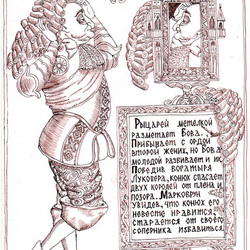 Рыцарей метелкой
разметает Бова.
Прибывает с ордой
второй жених, но Бова
молодой разбивает и их.
Победив богатыря
Лукопера, конюх спасает
двух королей от плена и
позора. Маркобрун
увидев, что конюх его
невесте нравится,
старается от своего
соперника избавиться.